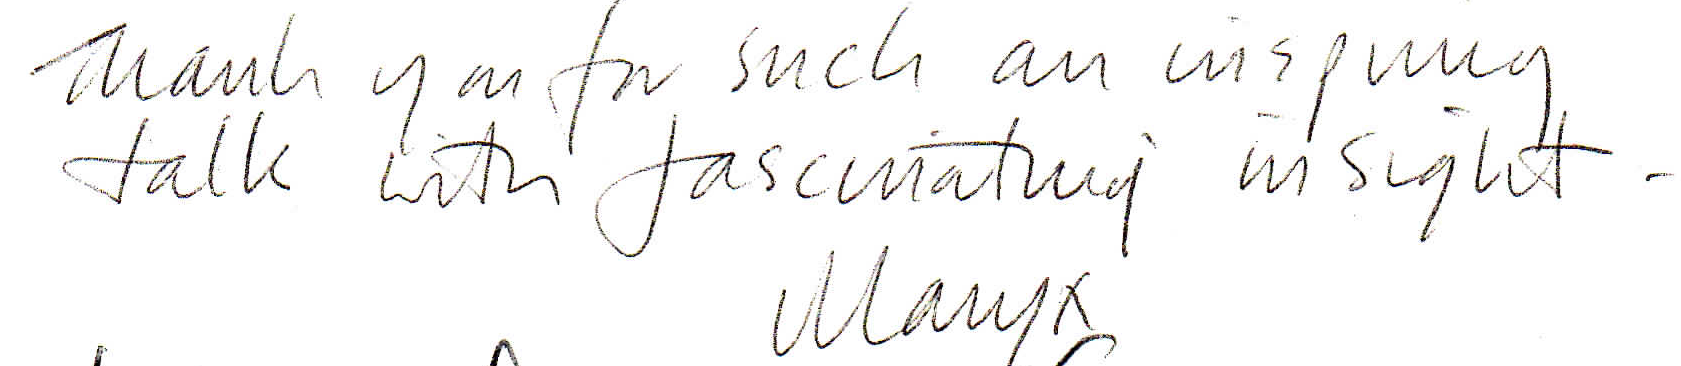 Thank you for such an inspiring
talk with fascinating insight -
Mary x